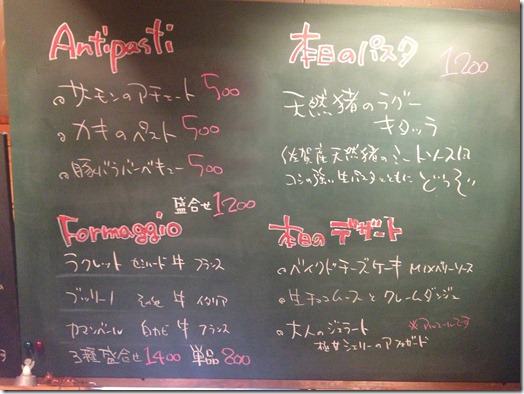 Antipasti
サーモンのアチェート 500
カキのペースト 500
豚バラバーベキュー 500
盛合せ 1200
Formaggio
ラクレット セミハード 牛 フランス
ブッリーノ 牛 イタリア
カマンベール 白カビ 牛 フランス
3種盛合せ 1400 単品 800
本日のパスタ 1200
天然猪のラグー
キタッラ
佐賀産天然猪のミートソースは
コシの強い生パスタとともにどうぞ
本日のデザート
ベイクドチーズケーキ MIXベリーソース
生チョコムースとクレームダンジュ
大人のジェラート ※アルコールです
極甘シェリーのアフォガード